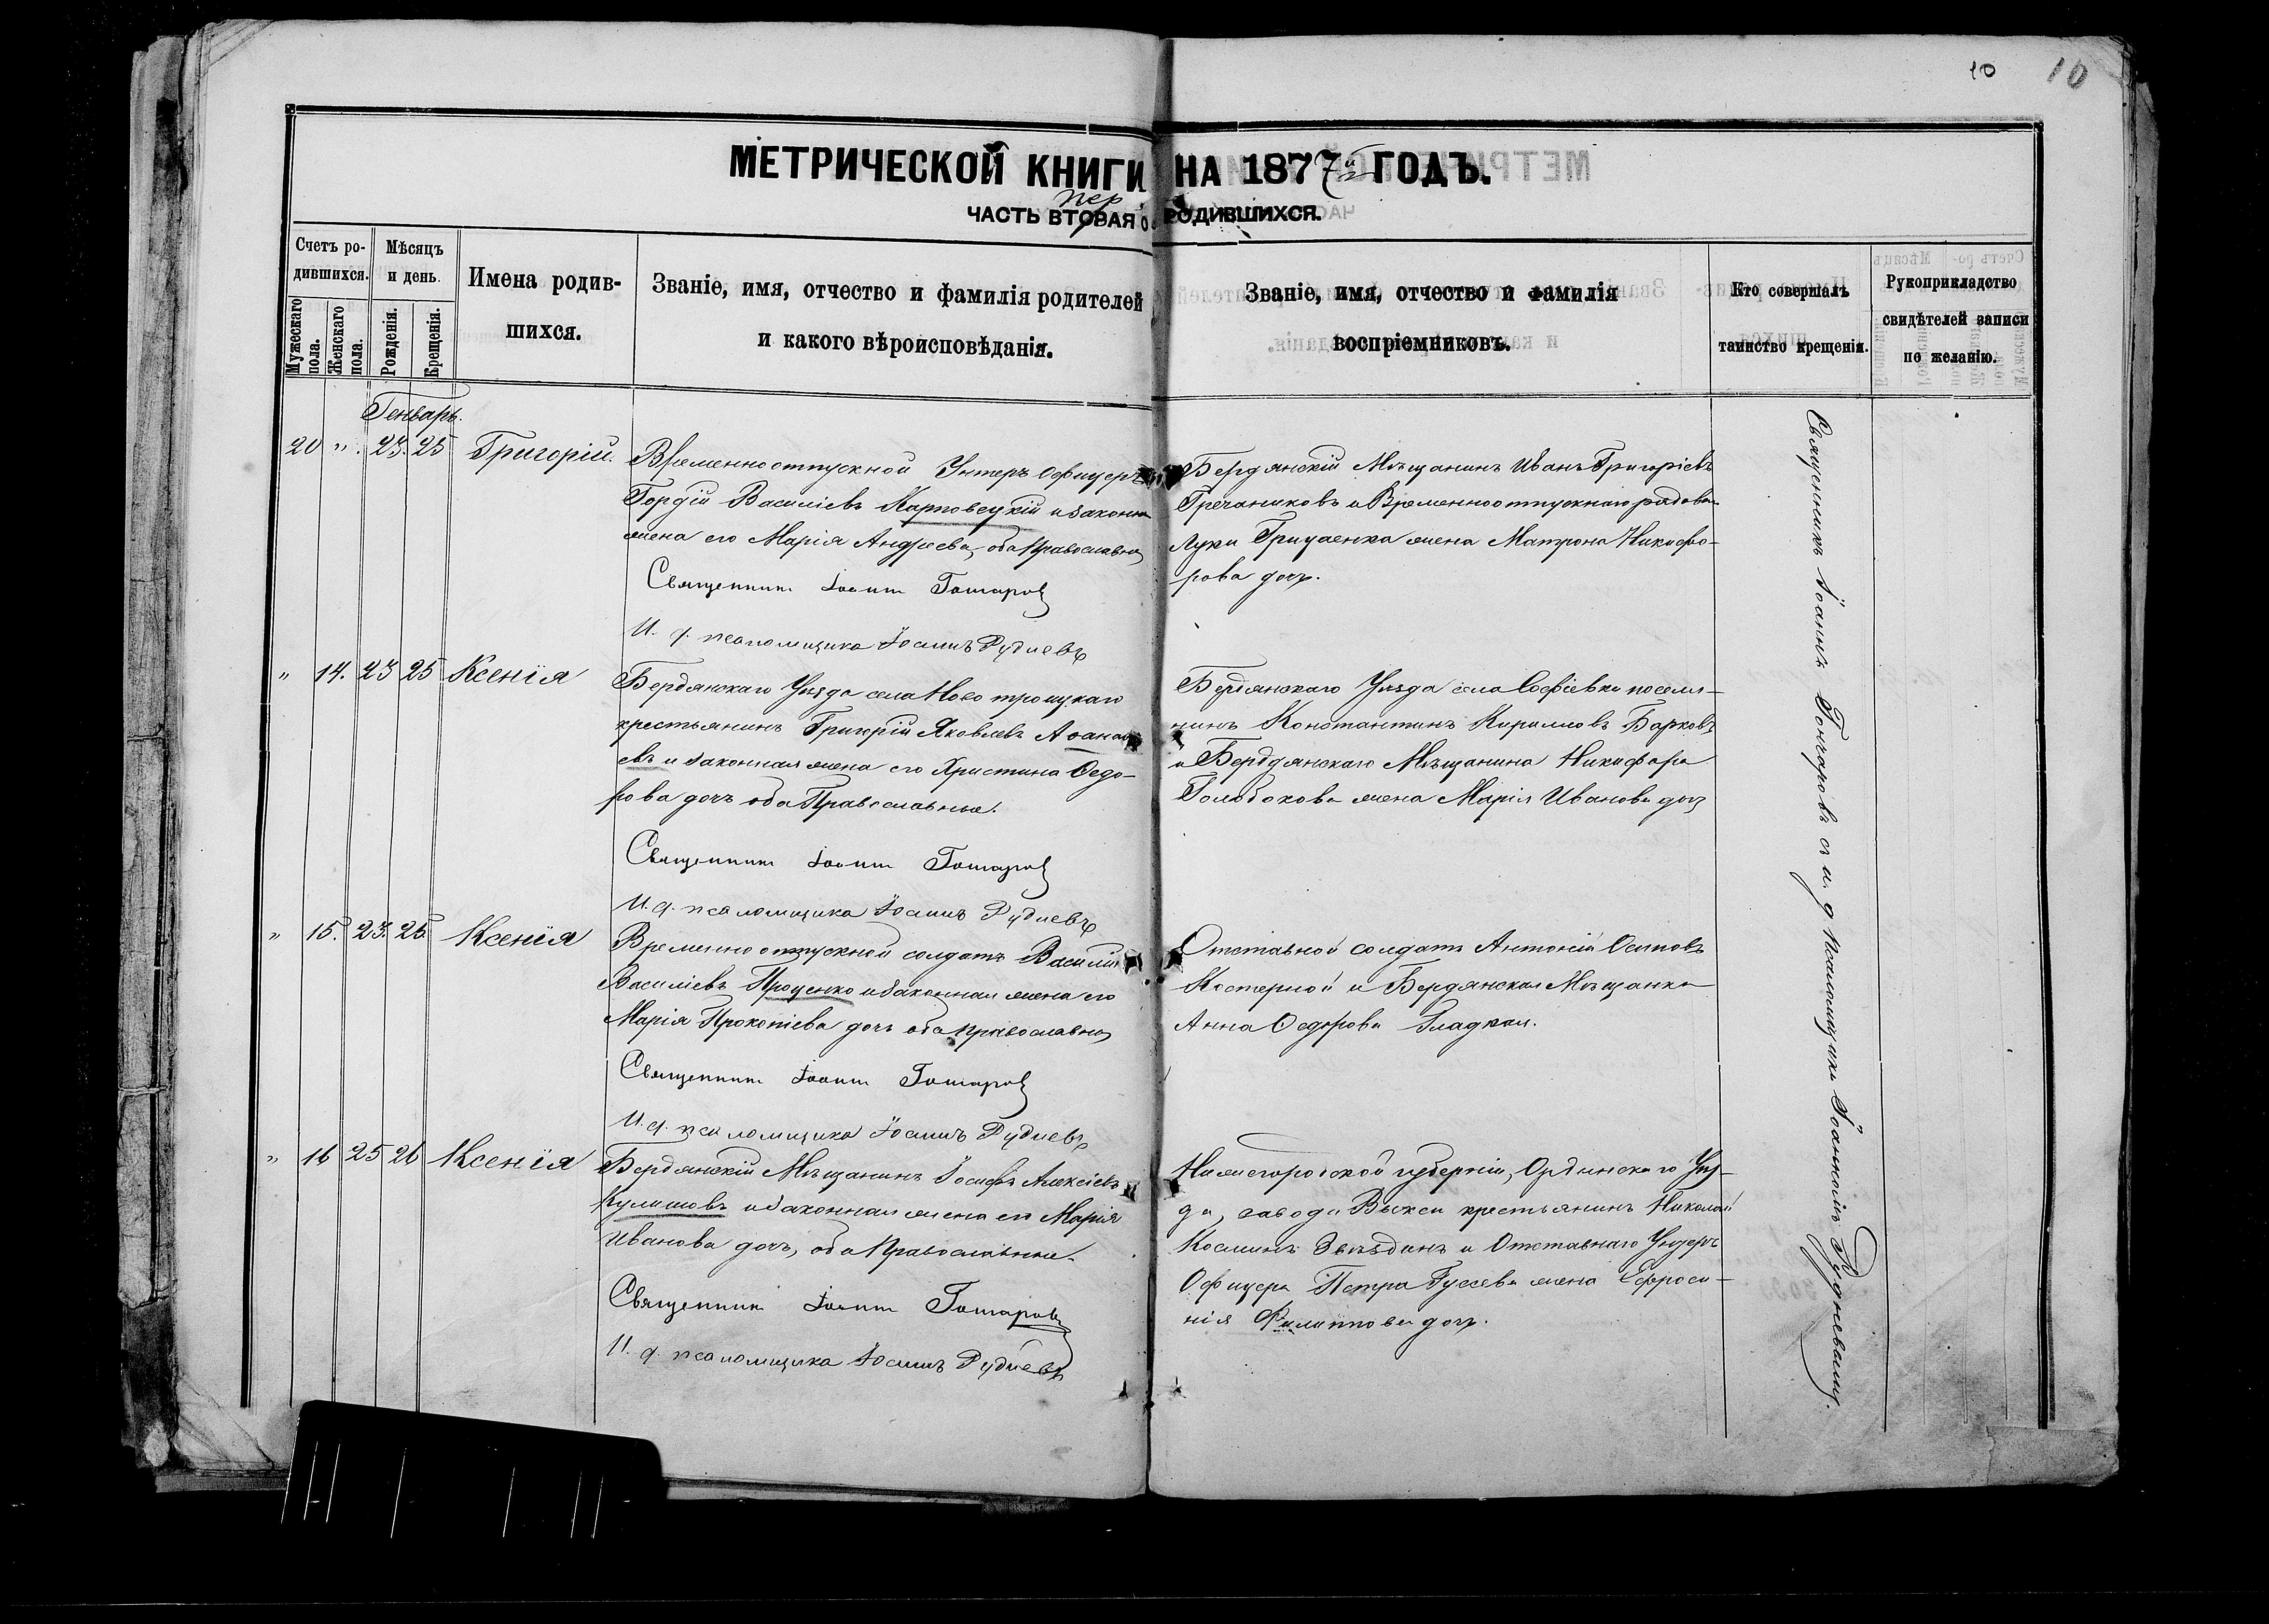 10 10
МЕТРИЧЕСКОЙ КНИГИ НА 1877й ГОДЪ.
пер
ЧАСТЬ ВТОРАЯ о РОДИВШИХСЯ.
Счетъ родившихся.
Мужескаго пола.
Женскаго пола.
Мѣсяцъ и день.
Рожденія.
Крещенія.
Имена родившихся.
Званіе, имя, отчество и фамилія родителей
и какого вѣроисповѣданія.
Званіе, имя, отчество и фамилія
воспріемниковъ.
Кто совершалъ
таинство крещенія.
Рукоприкладство
свидѣтелей записи
по желанію.
Генварь.
20 " 23. 25 Григорій.
Временноотпускной Унтеръ Офицеръ
Гордій Василіевъ Карповецкій и законная
жена его Марія Андреева, оба Православны
Священникъ Іоаннъ Гончаровъ
И. д. псаломщика Іоаннъ Рудневъ
Бердянскій Мѣщанинъ Иванъ Григоріевъ
Гречаниковъ и Временноотпускнаго рядоваго
Луки Гриценка жена Матрона Никифо-
рова дочь.
" 14. 23 25 Ксенія
Бердянскаго Уѣзда села Ново троицкаго
крестьянинъ Григорій Яковлевъ Аѳанась
евъ и законная жена его Христина Ѳедо-
рова дочь оба Православные.
Священникъ Іоаннъ Гончаровъ
И. д. псаломщика Іоаннъ Рудневъ
Бердянскаго Уѣзда села Софіевки поселя-
нинъ Константинъ Кириловъ Барковъ
и Бердянскаго Мѣщанина Никифора
Голобокова жена Марія Иванова дочь
" 15. 23. 25. Ксенія
Временно отпускной солдатъ Василій
Василіевъ Проценко и законная жена его
Марія Прокопіева дочь оба православны
Священникъ Іоаннъ Гончаровъ
И. д. псаломщика Іоаннъ Рудневъ
Отставной солдатъ Антоній Осиповъ
Костерной и Бердянская Мѣщанка
Анна Ѳедорова Гладкая.
" 16 25 26 Ксенія
Бердянскій Мѣщанинъ Іосифъ Алексіевъ
Кулишовъ и законная жена его Марія
Иванова дочь, оба Православные.
Священникъ Іоаннъ Гончаровъ
И. д. псаломщика Іоаннъ Рудневъ
Нижегородской губерніи, Ардинскаго Уѣз-
да, завода Выкси крестьянинъ Николай
Косминъ Звѣздинъ и Отставнаго Унтеръ
Офицера Петра Гусева жена Ефроси-
нія Филиппова дочь.
Священникъ Іоаннъ Гончаровъ съ и. д. псаломщика Іоанномъ Рудневымъ.